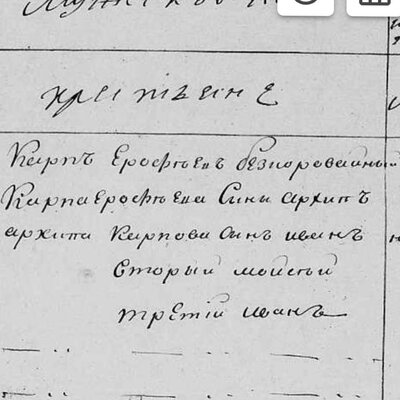 крестьяне
Карпъ Ерофѣевъ безкоровайный
Карпа Ерофѣева Сынъ архипъ
архипа Карпова Сынъ иванъ
вторый мойсѣй
третій иванъ